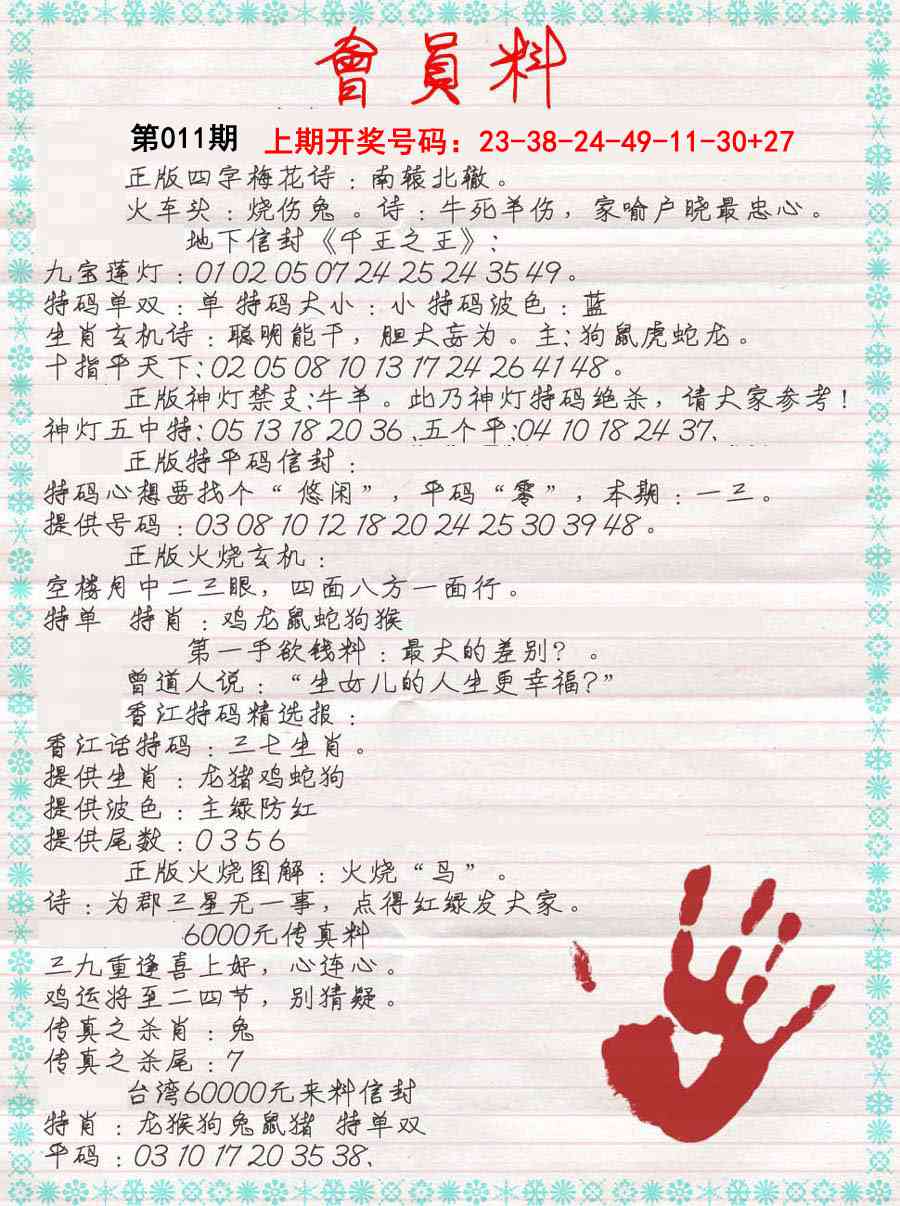 會員料
第011期 上期开奖号码：23-38-24-49-11-30+27
正版四字梅花诗：南辕北辙。
火车头：烧伤兔。诗：牛死羊伤，家喻户晓最忠心。
地下信封《千王之王》：
九宝莲灯：01 02 05 07 24 25 24 35 49。
特码单双：单 特码大小：小 特码波色：蓝
生肖玄机诗：聪明能干，胆大妄为。主：狗鼠虎蛇龙。
十指平天下：02 05 08 10 13 17 24 26 41 48。
正版神灯禁支：牛羊。此乃神灯特码绝杀，请大家参考！
神灯五中特：05 13 18 20 36、五个平：04 10 18 24 37、
正版特平码信封：
特码心想要找个“悠闲”，平码“零”，本期：一三。
提供号码：03 08 10 12 18 20 24 25 30 39 48。
正版火烧玄机：
空楼月中二三眼，四面八方一面行。
特单 特肖：鸡龙鼠蛇狗猴
第一手欲钱料：最大的差别？。
曾道人说：“生女儿的人生更幸福？”
香江特码精选报：
香江话特码：三七生肖。
提供生肖：龙猪鸡蛇狗
提供波色：主绿防红
提供尾数：0 3 5 6
正版火烧图解：火烧“鸟”。
诗：为郡三星无一事，点得红绿发大家。
6000元传真料
三九重逢喜上好，心连心。
鸡运将至二四节，别猜疑。
传真之杀肖：兔
传真之杀尾：7
台湾60000元来料信封
特肖：龙猴狗兔鼠猪 特单双
平码：03 10 17 20 35 38、